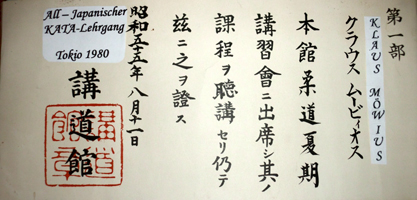 第一部
KLAUS MÖWIUS
クラウス ムービィオス
本館柔道夏期
講習會ニ出席シ其ノ
課程ヲ聴講セリ仍テ
茲ニ之ヲ證ス
昭和五五年八月十一日
講道館
All – Japanischer
KATA-Lehrgang
Tokio 1980